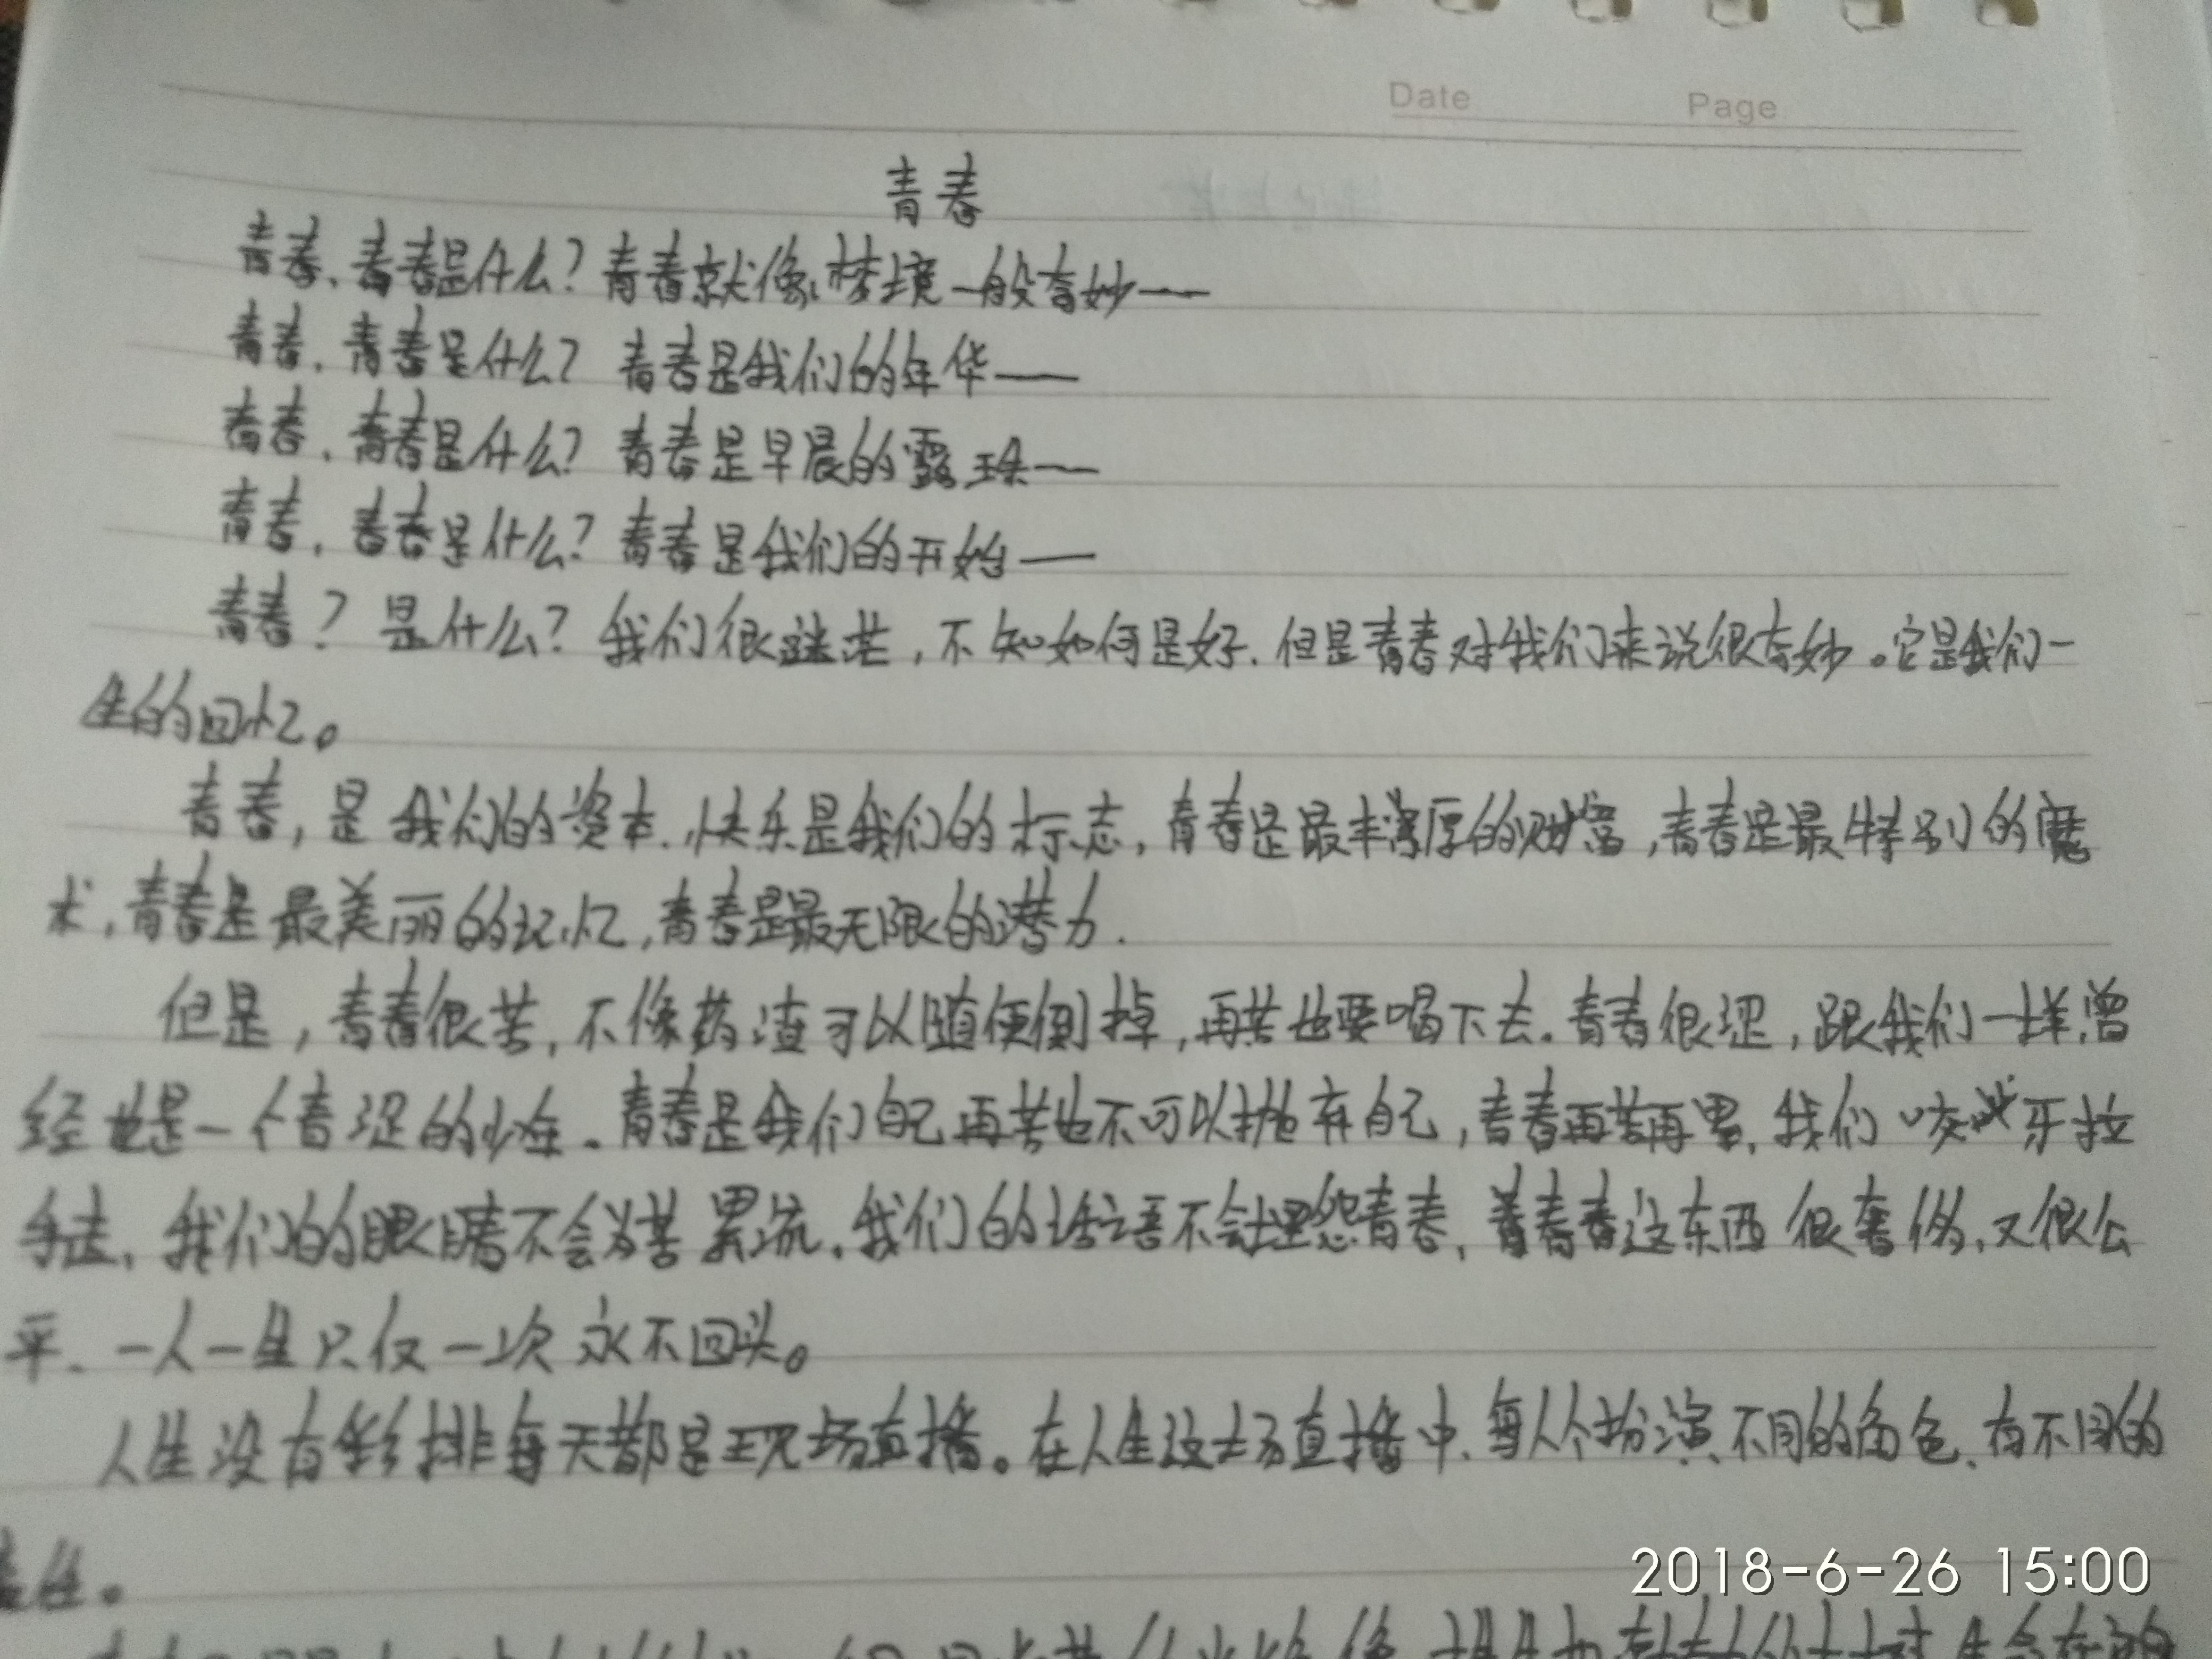 Date Page
青春
青春、青春是什么?青春就像梦境一般奇妙——
青春、青春是什么?青春是我们的年华——
青春、青春是什么?青春是早晨的露珠——
青春,青春是什么?青春是我们的开始——
青春?是什么?我们很迷茫,不知如何是好.但是青春对我们来说很奇妙。它是我们一
生的回忆。
青春,是我们的资本.快乐是我们的标志,青春是最丰厚的财富,青春是最特别的魔
术,青春是最美丽的记忆,青春是最无限的潜力.
但是,青春很苦,不像药渣可以随便倒掉,再苦也要喝下去.青春很涩,跟我们一样,曾
经也是一个青涩的少年.青春是我们自己再苦也不可以抛弃自己,青春再苦再累,我们咬牙拉
手走,我们的眼睛不会为苦累流.我们的话语不会埋怨青春、青春这东西很奢侈、又很公
平、一人一生只仅一次永不回头。
人生没有彩排每天都是现场直播。在人生这场直播中、每人个扮演不同的角色、有不同的
责任。
2018-6-26 15:00